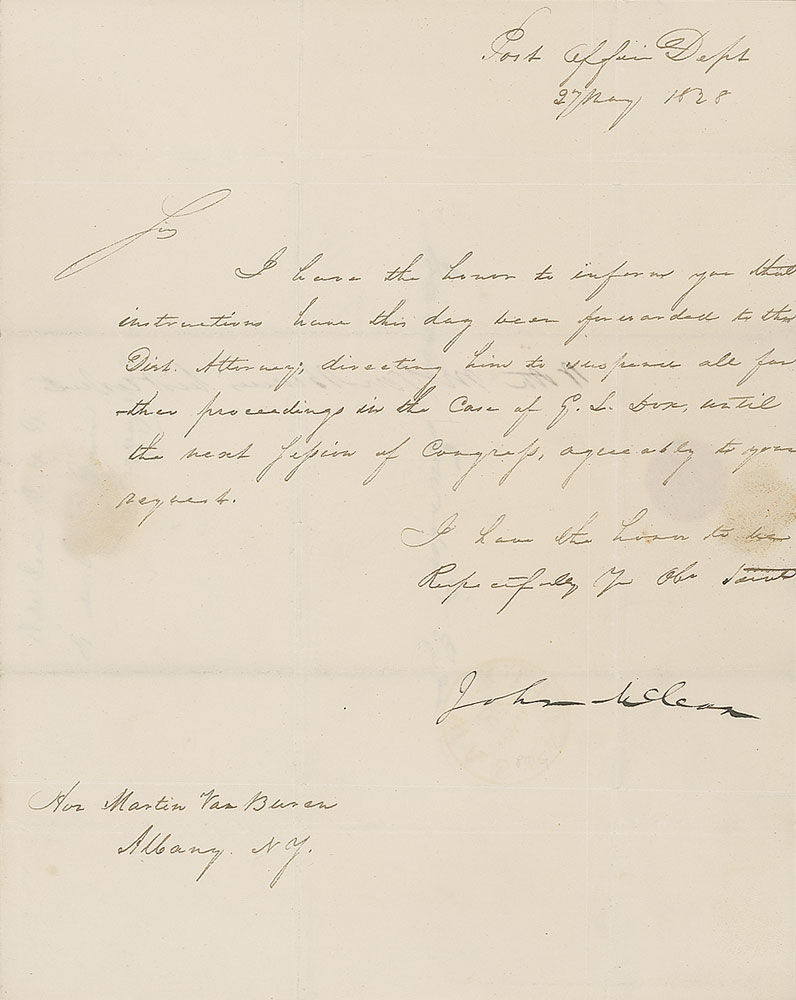 Post Office Dept
27 May 1828
Sir
I have the honor to inform you that
instructions have this day been forwarded to the
Dist. Attorney, directing him to suspend all fur
-ther proceedings in the Case of G. L. Dox, until
the next Session of Congress, agreeably to your
request.
I have the honor to be
Respectfully Yr Obt Servt
John McLean
Hon Martin Van Buren
Albany. N Y.